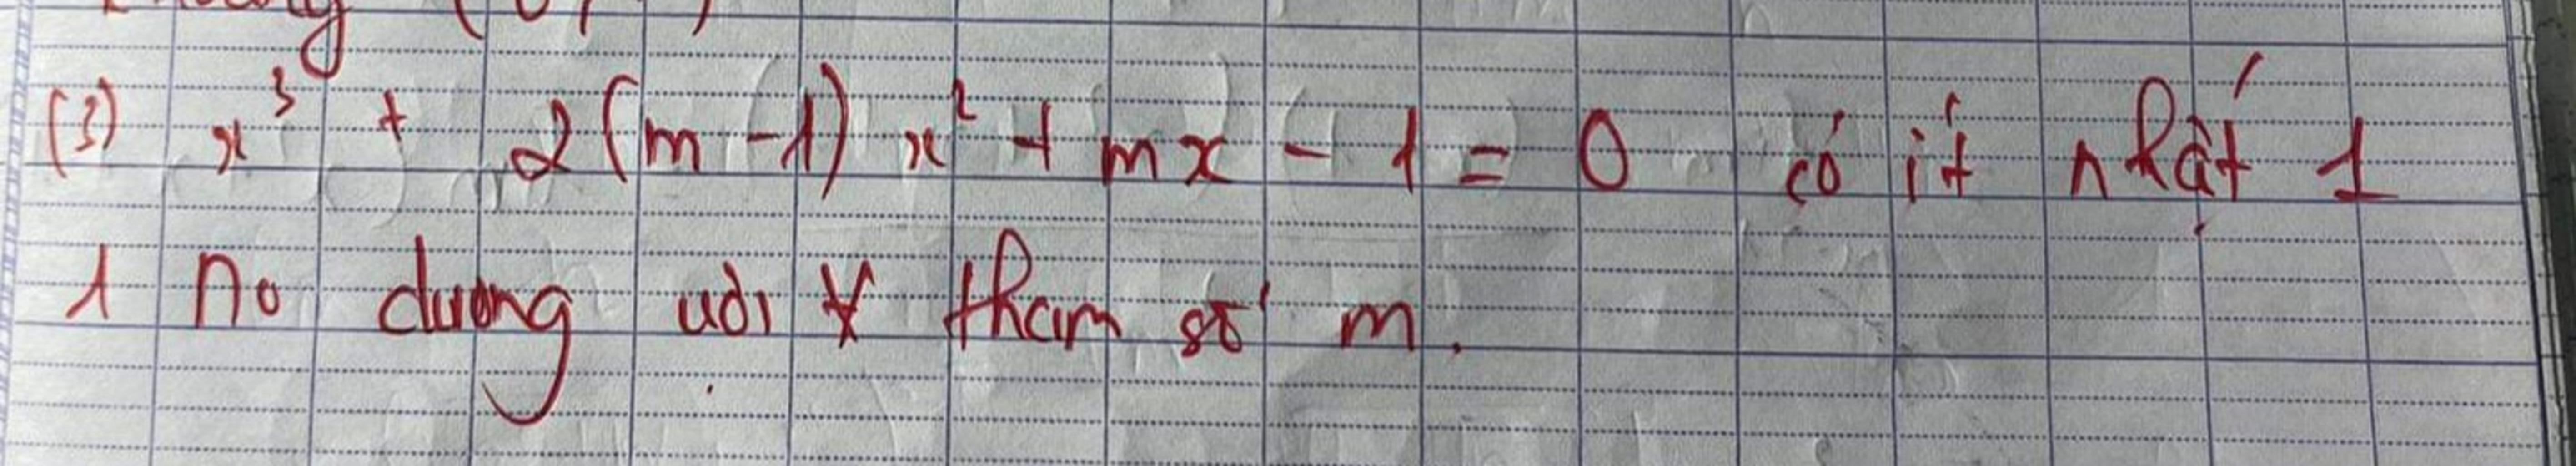 (3) x³ + 2(m-1) x² + mx - 1 = 0 có ít nhất 1
1 no dương với ∀ tham số m.